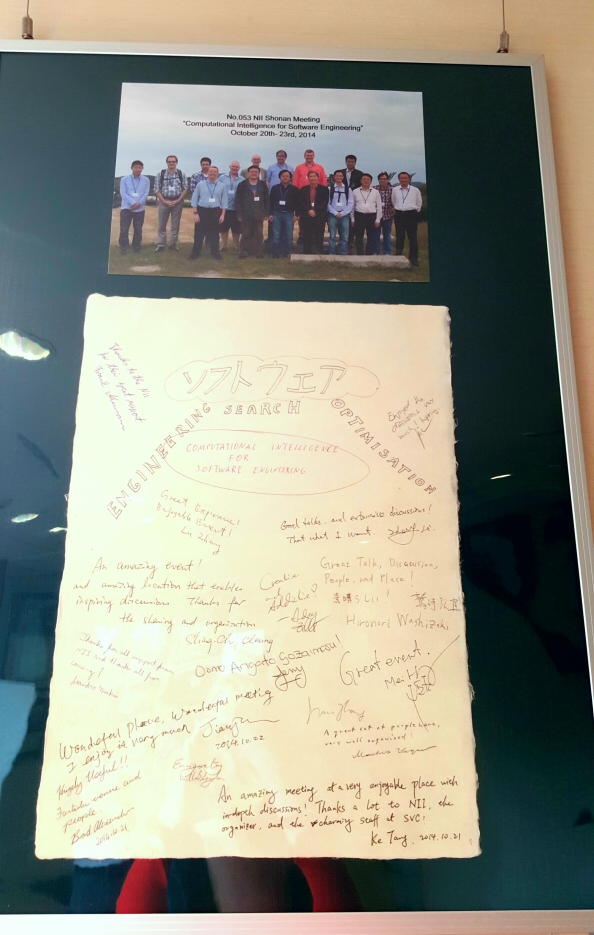 No.053 NII Shonan Meeting
"Computational Intelligence for Software Engineering"
October 20th- 23rd, 2014
Thanks to the NII
for their great support
ソフトウェア
ENGINEERING SEARCH OPTIMISATION
COMPUTATIONAL INTELLIGENCE
FOR
SOFTWARE ENGINEERING
Enjoyed the
discussions very
much!
Great Experience!
Enjoyable Event!
Lu Zhang
Good talks, and extensive discussions!
That what I want
An amazing event!
and amazing location that enables
inspiring discussions. Thanks for
the sharing and organization
Shing-Chi Cheung
Creative
&
Addictive
Great Talk, Discussion,
People, and Place!
鷲崎弘宜
Hironori Washizaki
Domo Arigato Gozaimasu!
Jerry
Great event.
Mei H
Wonderful place, wonderful meeting
I enjoy it very much
2014.10.22
A great set of people here,
very well organised!
Hugely Useful!!
Fantastic venue and
people
Brad Alexander
2014.10.21
An amazing meeting at a very enjoyable place with
in-depth discussions! Thanks a lot to NII, the
organizer, and the charming staff at SVC!
Ke Tang, 2014.10.21